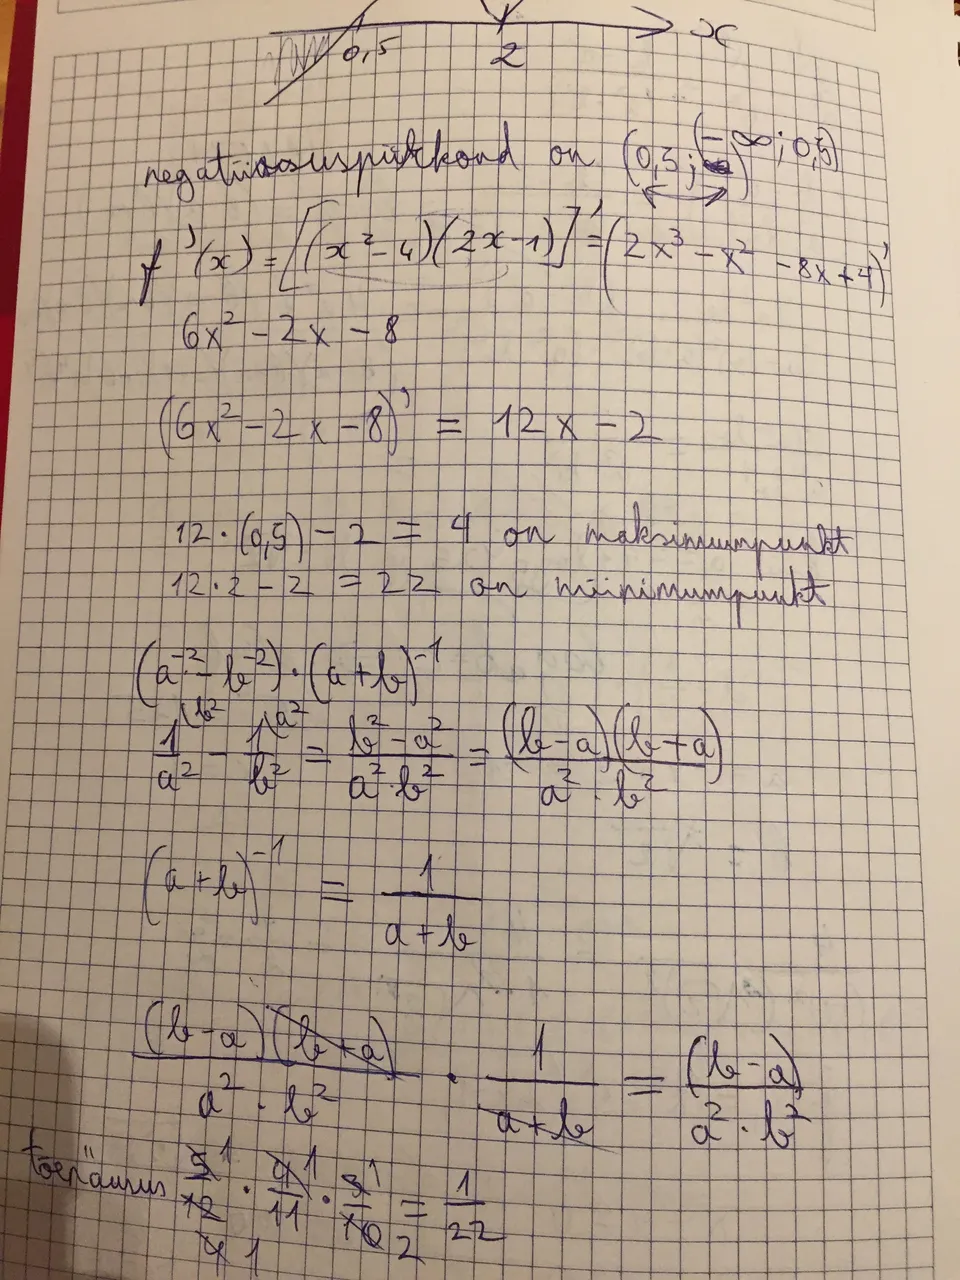 0,5 2 x
negatiivsuspiirkond on (0,5; (-∞; 0,5)
f'(x) = [(x² - 4)(2x - 1)]' = (2x³ - x² - 8x + 4)'
6x² - 2x - 8
(6x² - 2x - 8)' = 12x - 2
12 · (0,5) - 2 = 4 on maksimumpunkt
12 · 2 - 2 = 22 on miinimumpunkt
(a⁻² - b⁻²) · (a + b)⁻¹
1\b²/a² - 1\a²/b² = (b² - a²)/(a² · b²) = (b - a)(b + a)/(a² · b²)
(a + b)⁻¹ = 1/(a + b)
(b - a)(b + a)/(a² · b²) · 1/(a + b) = (b - a)/(a² · b²)
tõenäosus 5 1/12 4 1 · 4 1/11 · 3 1/10 2 = 1/22